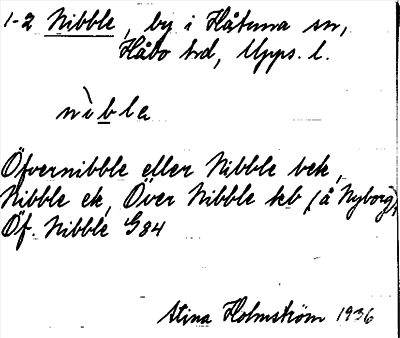 1-2 Nibble, by i Håtuna sn,
Håbo hd, Upps. l.
nìbla
Öfvernibble eller Nibble bek,
Nibble ek, Över Nibble kb (å Nyborg),
Öf. Nibble G84
Stina Holmström 1936